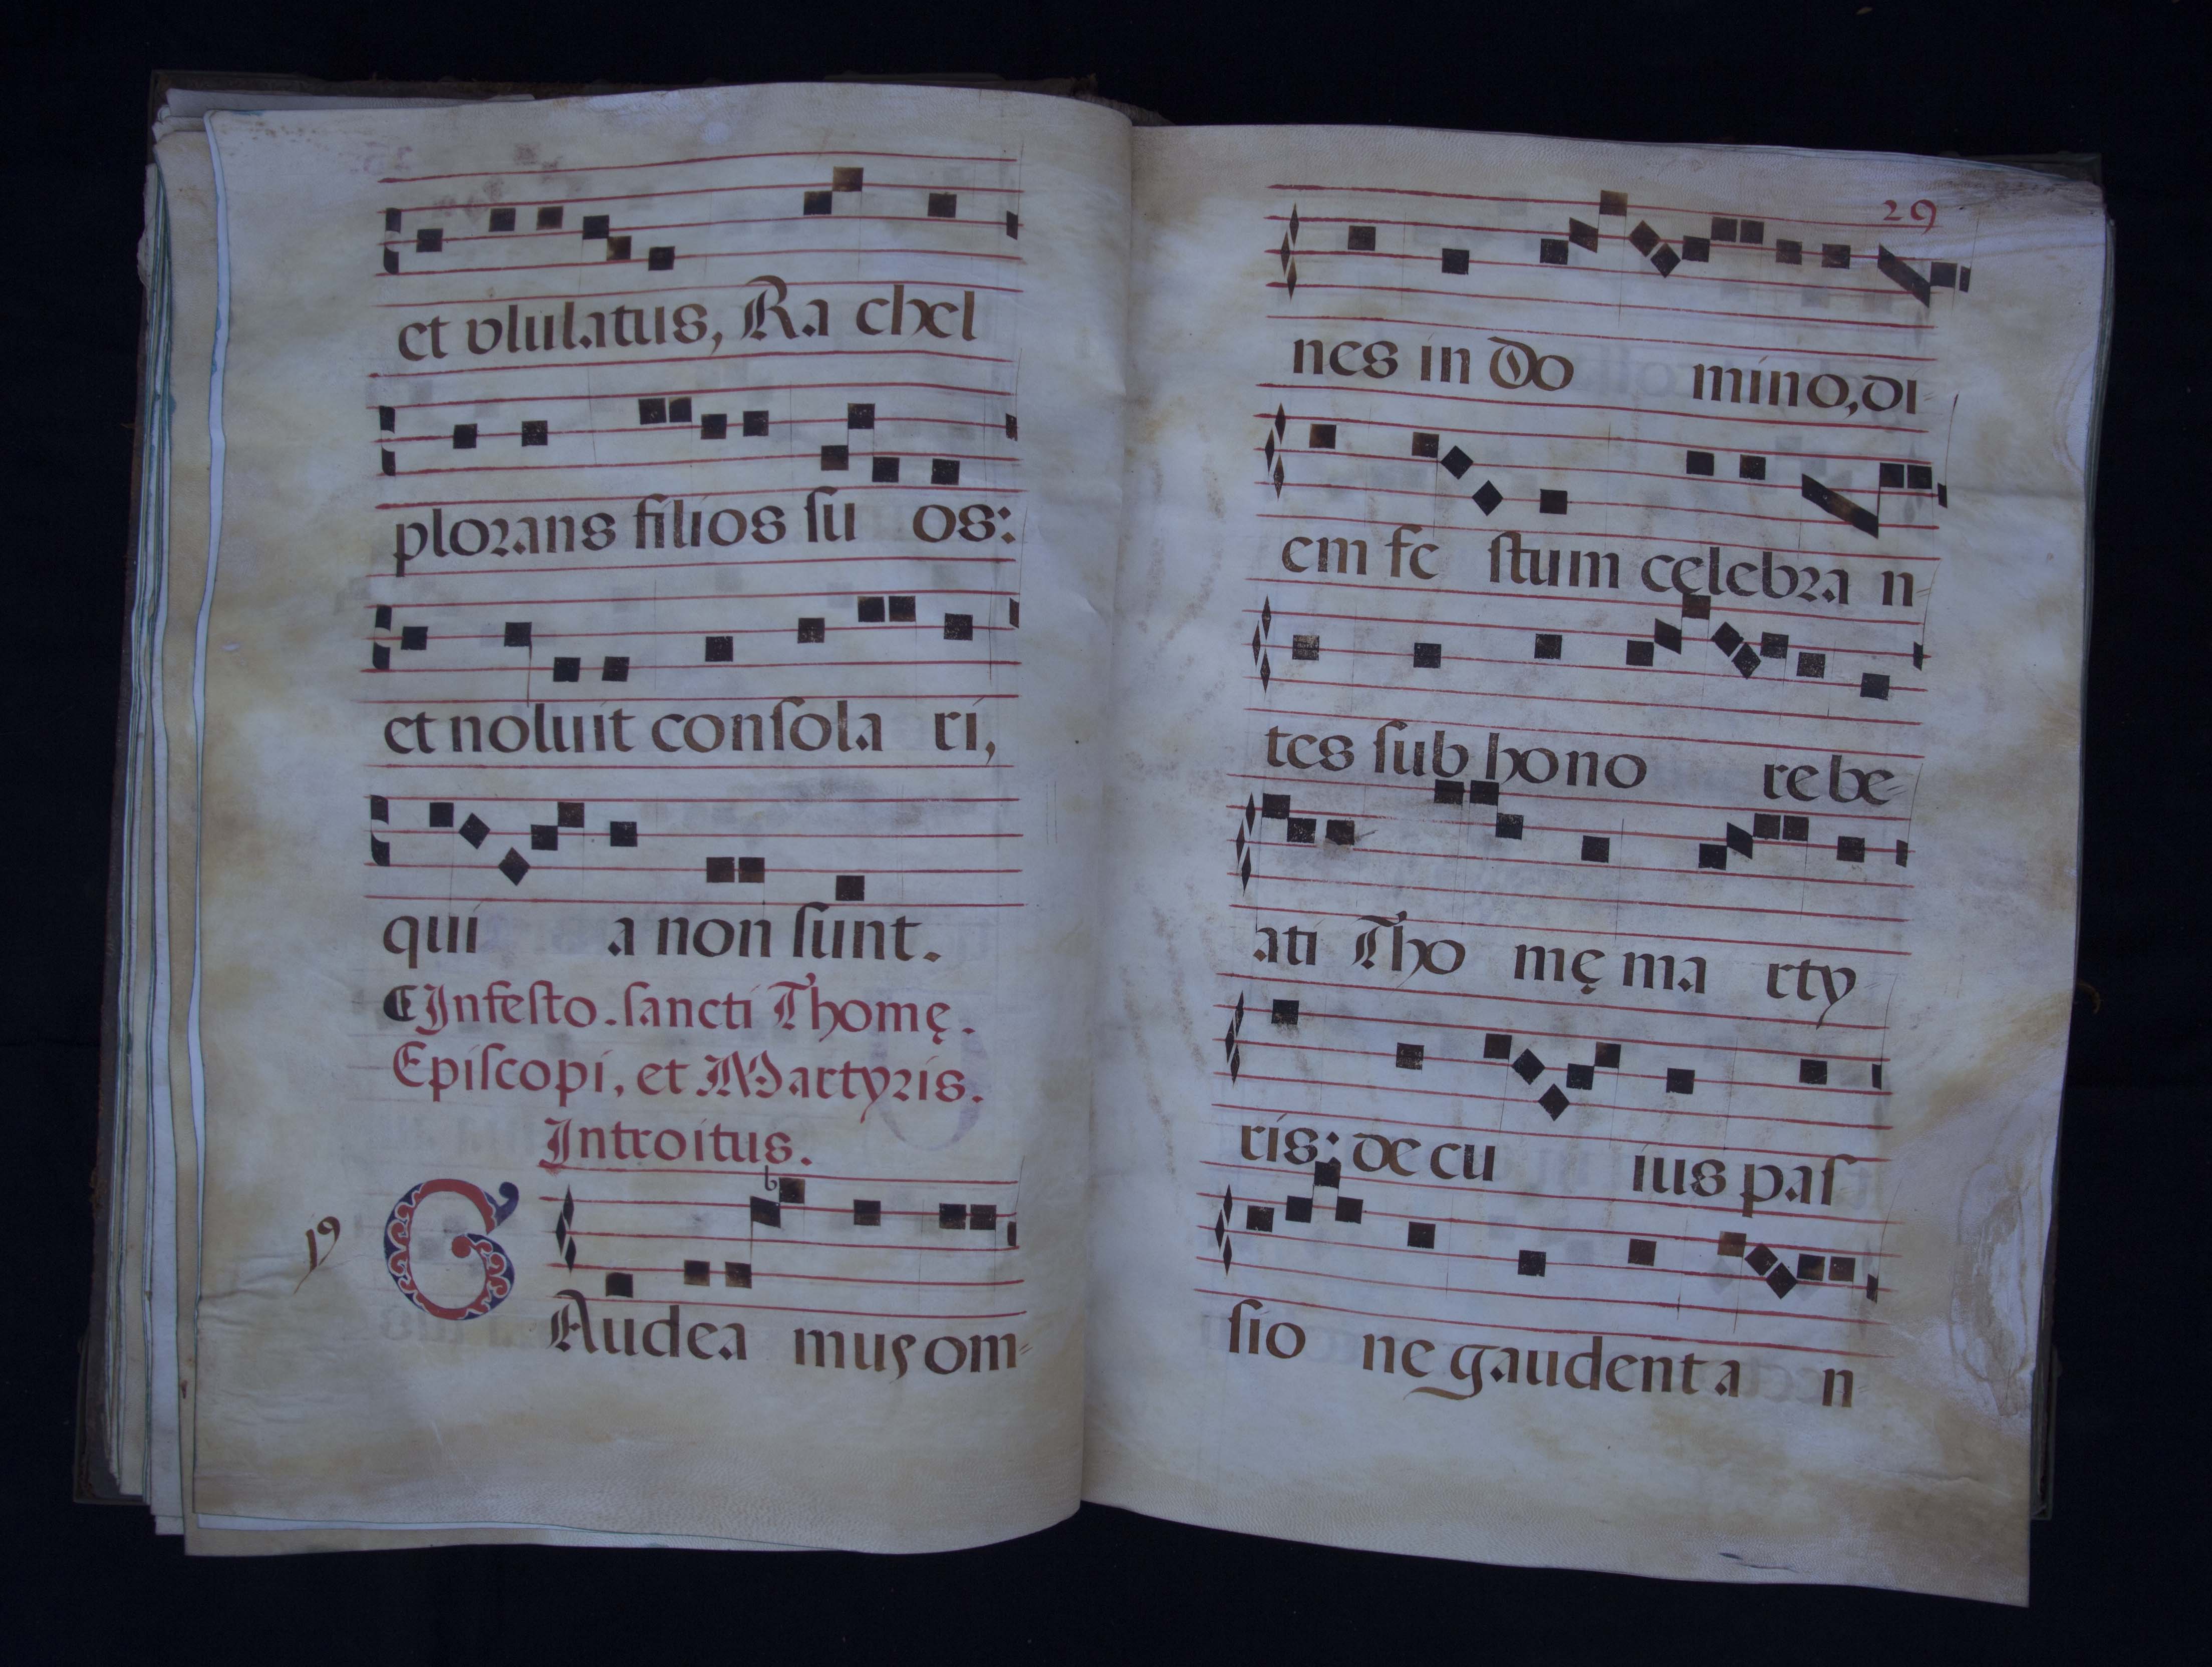 et vlulatus, Ra chel
plorans filios ſu os:
et noluit conſola ri,
qui a non ſunt.
Infeſto. ſancti Thomę.
Epiſcopi, et Martyris.
Introitus.
G
Audea mus om=
29
nes in Do mino, di=
em fe ſtum cęlebra n=
tes ſub hono re be=
ati Tho mę ma rty
ris: de cu ius paſ
ſio ne gaudent a n